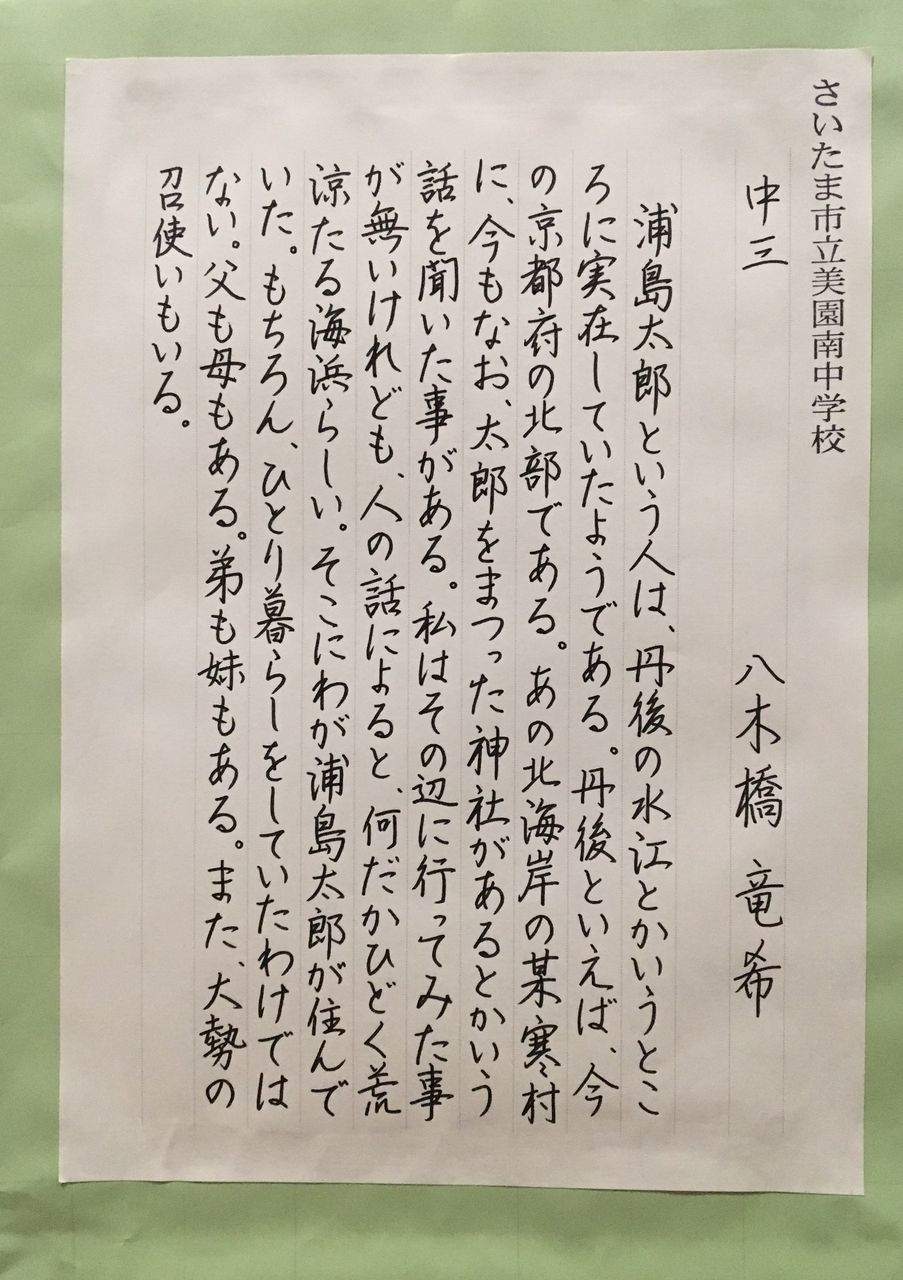 さいたま市立美園南中学校
中三　八木橋竜希
浦島太郎という人は、丹後の水江とかいうとこ
ろに実在していたようである。丹後といえば、今
の京都府の北部である。あの北海岸の某寒村
に、今もなお、太郎をまつった神社があるとかいう
話を聞いた事がある。私はその辺に行ってみた事
が無いけれども、人の話によると、何だかひどく荒
涼たる海浜らしい。そこにわが浦島太郎が住んで
いた。もちろん、ひとり暮らしをしていたわけでは
ない。父も母もある。弟も妹もある。また、大勢の
召使いもいる。